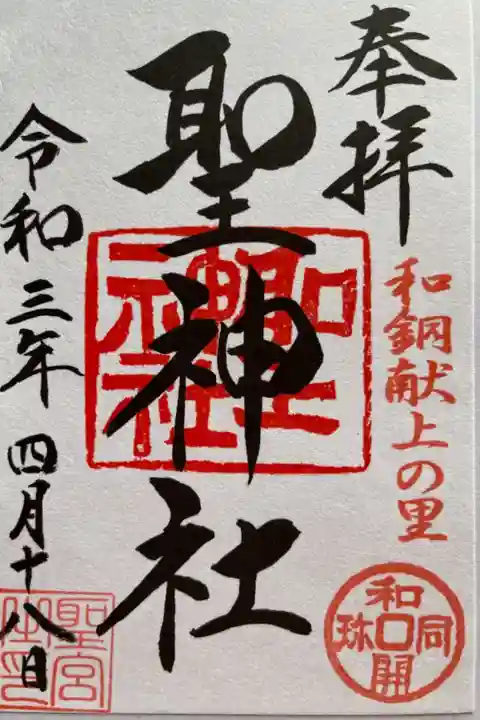 奉拝
和銅献上の里
和同開珎
聖神社
聖神社
令和三年四月十八日
聖宮